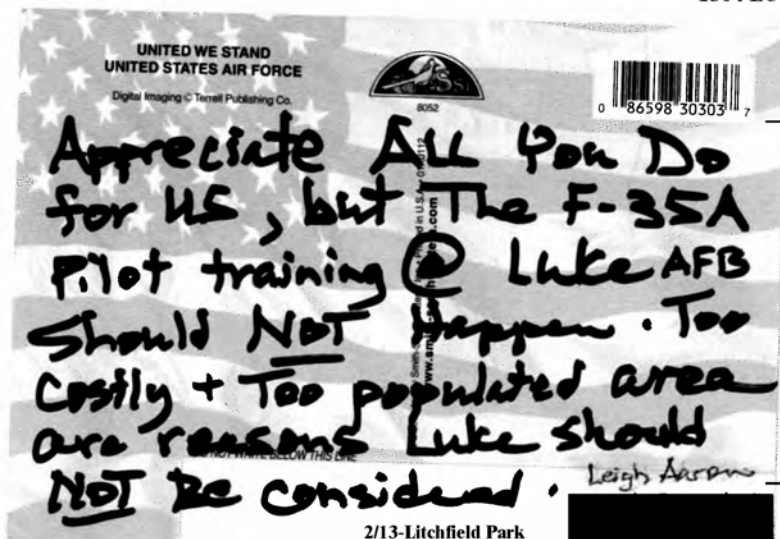 UNITED WE STAND
UNITED STATES AIR FORCE
Digital Imaging © Terrell Publishing Co.
8052
0 86598 30303 7
Appreciate ALL You Do
for US, but The F-35A
Pilot training @ Luke AFB
Should NOT Happen. Too
Costly + Too populated area
are reasons Luke should
NOT Be considered.
Leigh Aarons
2/13-Litchfield Park